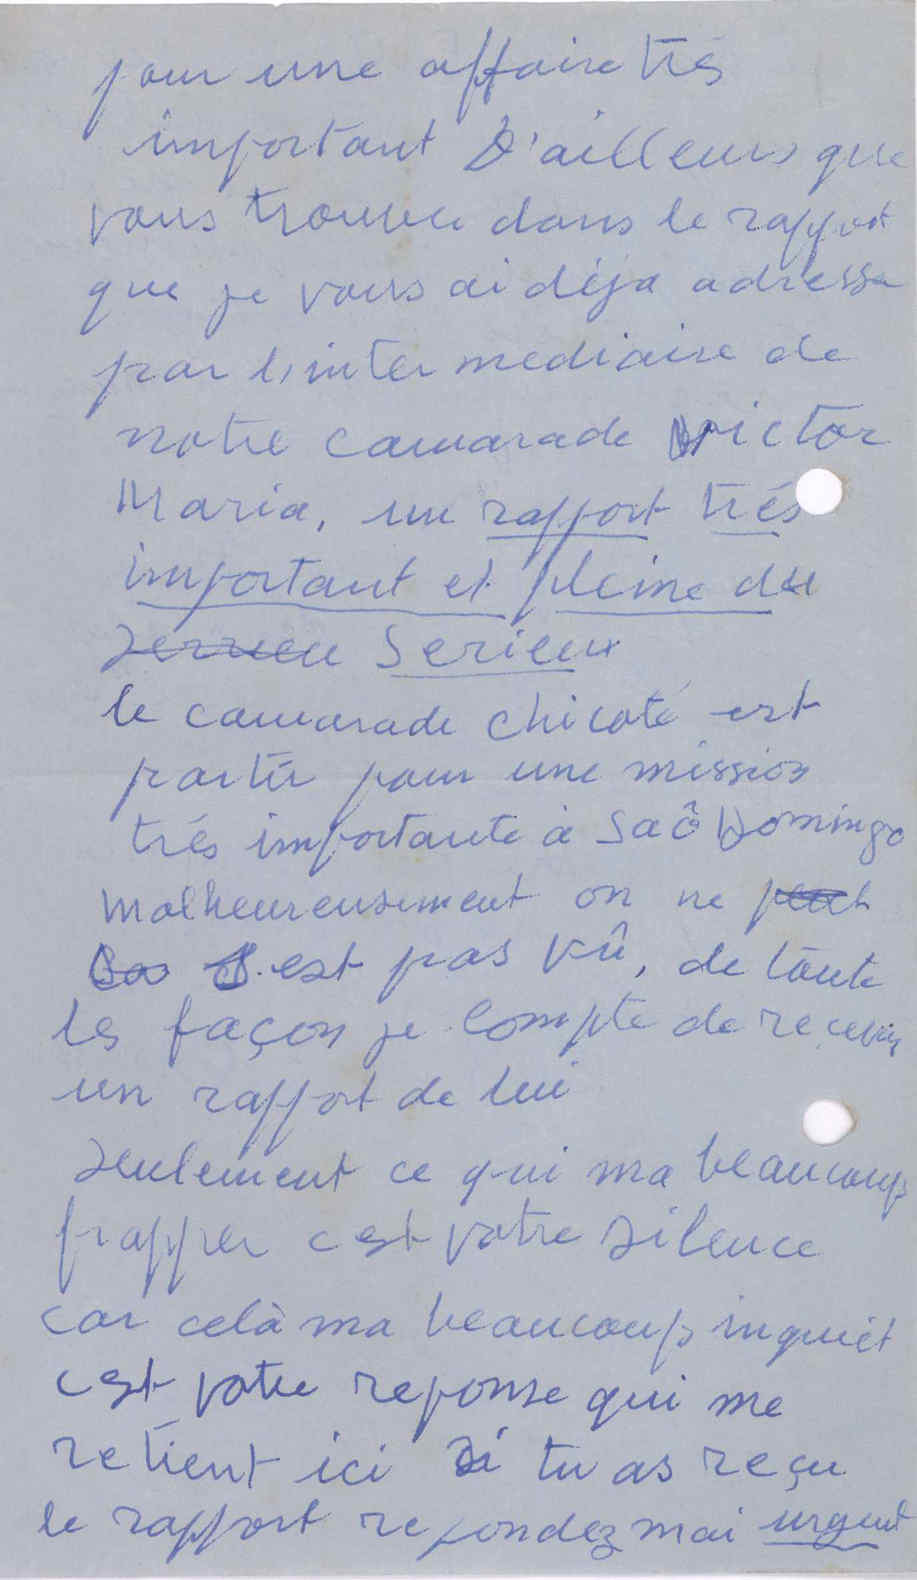 pour une affaire trés
important D'ailleurs que
vous trouvez dans le rapport
que je vous ai déja adresse
par l,intermediaire de
notre camarade victor
Maria, un rapport trés
important et pleine du
Serieux
le camarade chicoté est
partir pour une mission
trés importante à Saô Domingo
Malheureusement on ne peut
s'est pas vû, de toute
les façon je compte de recevoir
un rapport de lui
seulement ce qui ma beaucoup
frapper cest votre silence
car celà ma beaucoup inquiét
cest votre reponse qui me
retient ici si tu as reçu
le rapport repondez moi urgent